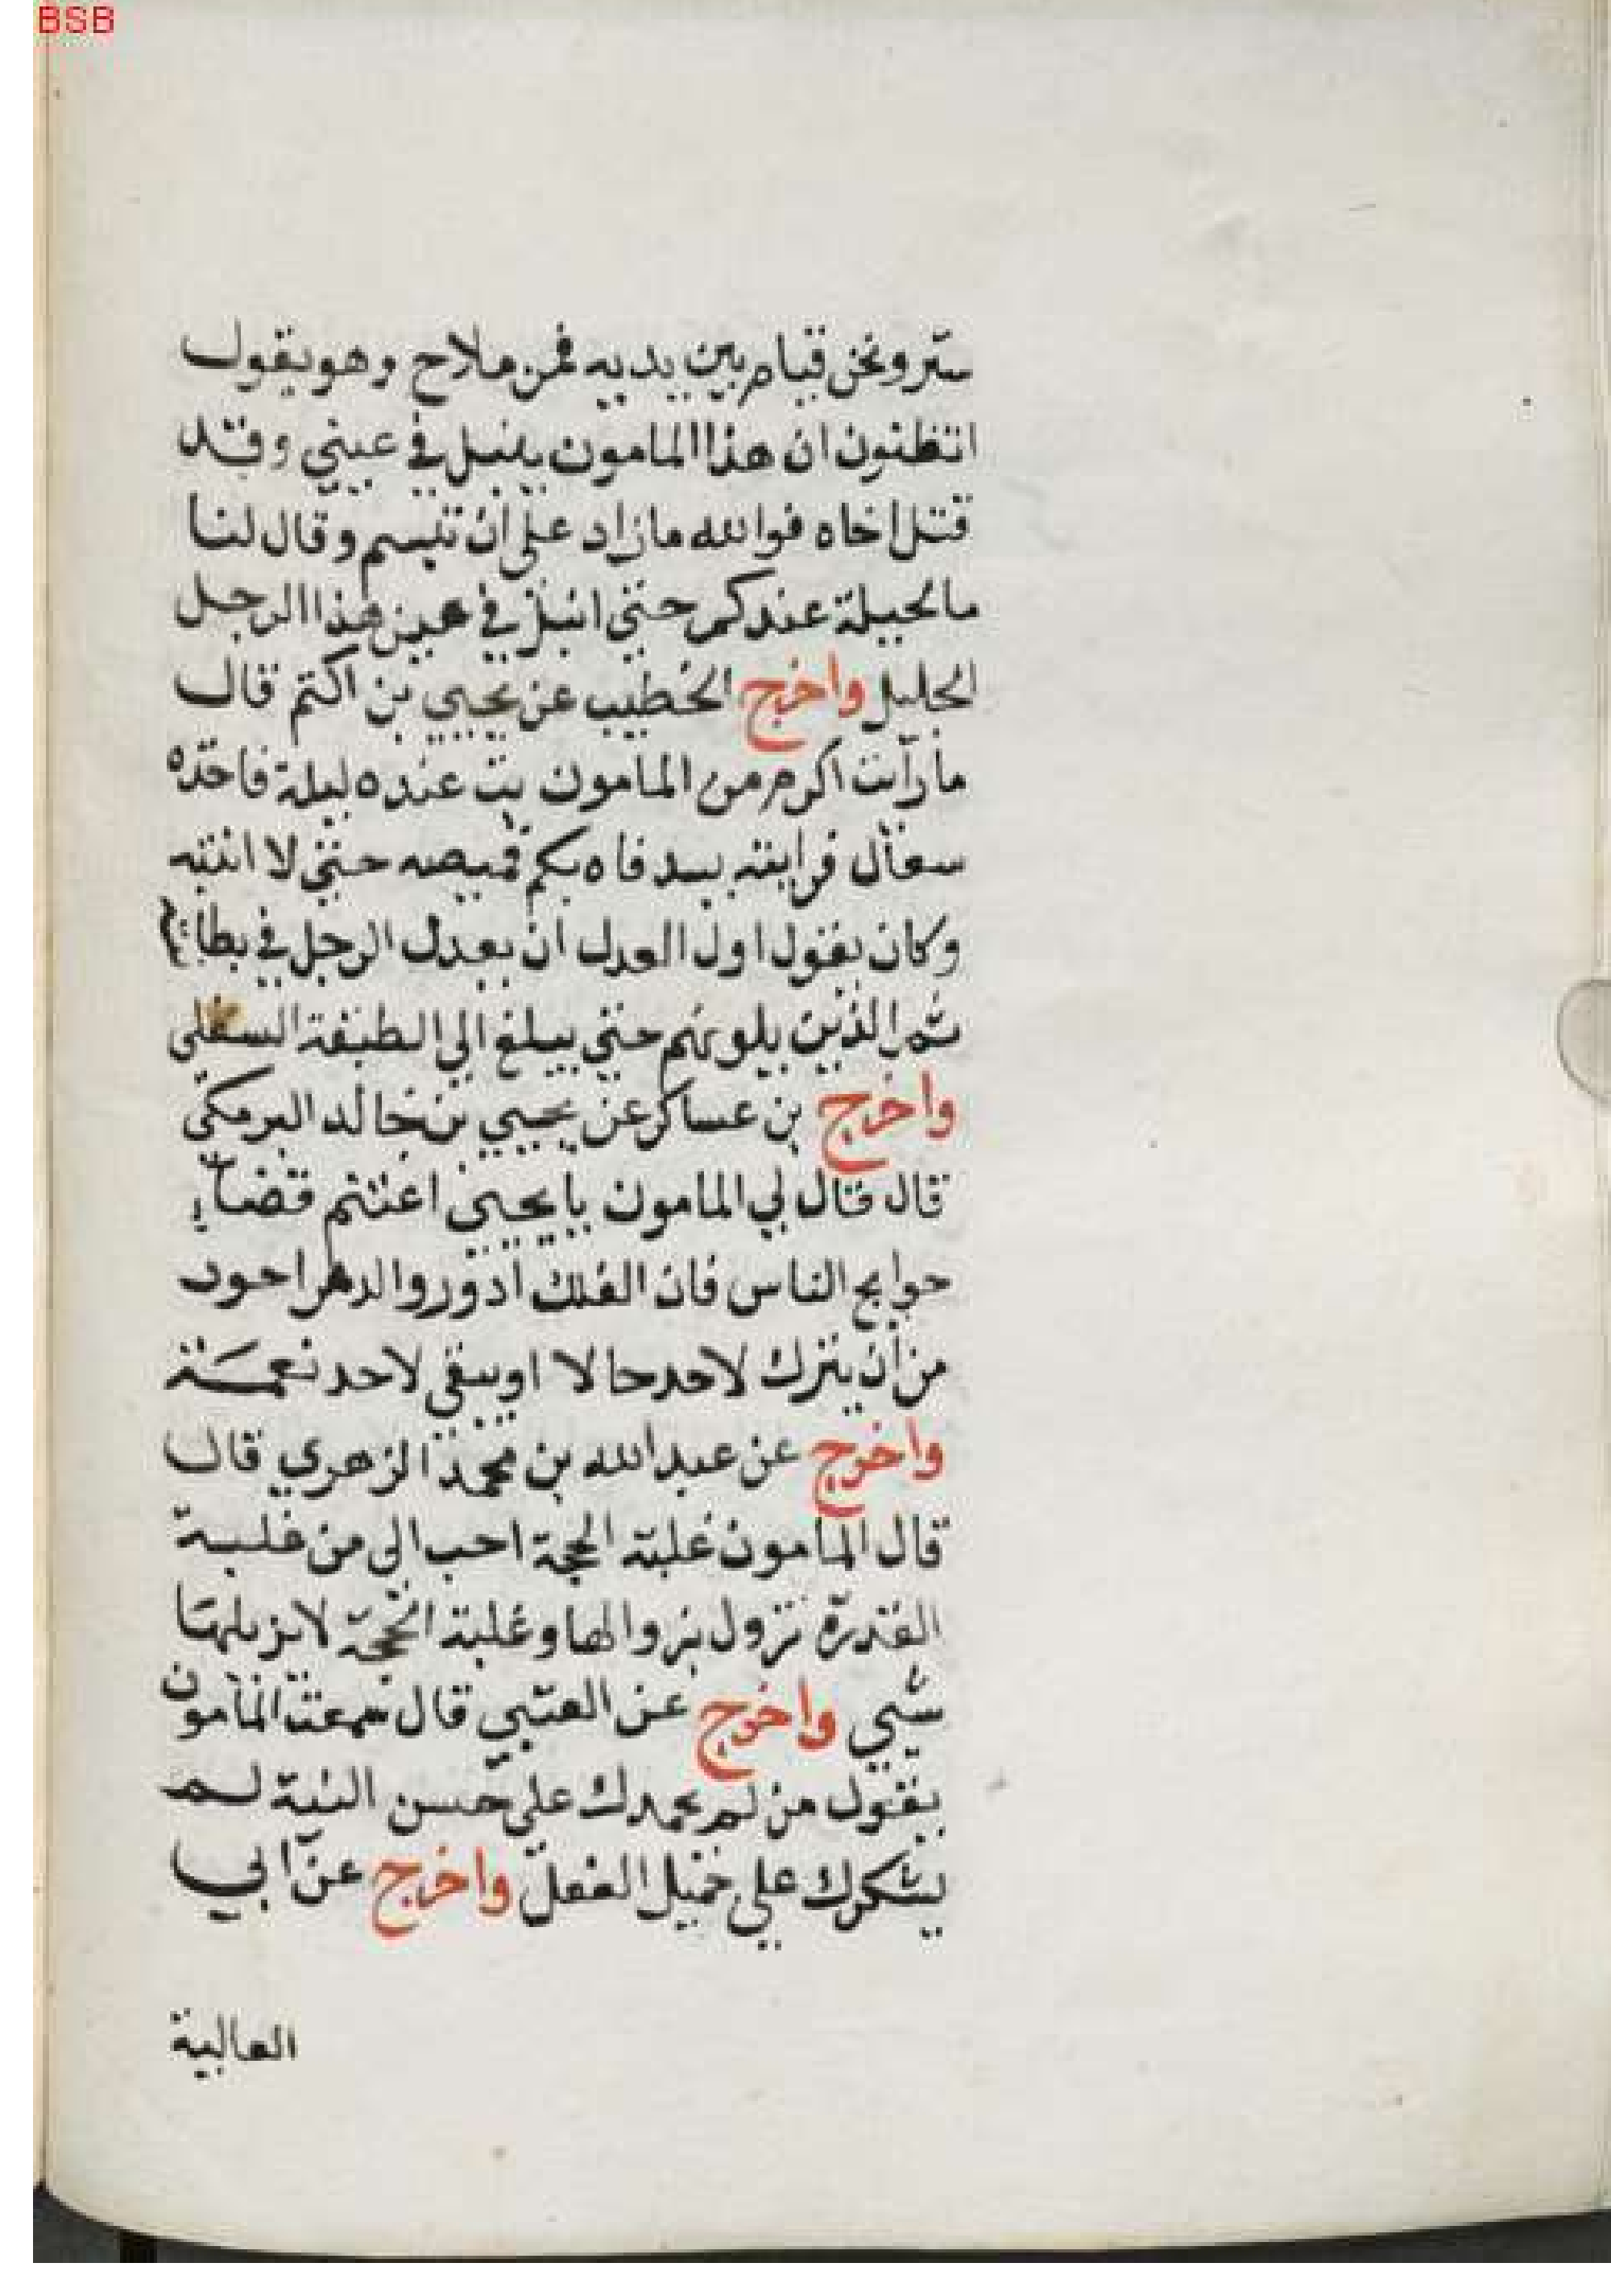 BSB
ستر ونحن قيام بين يديه فمن ملاح وهو يقول
اتظنون ان هذا المامون ينبل في عيني وقد
قتل اخاه فوالله ما زاد على ان تبسم وقال لنا
ما الحيلة عندكم حتى انبل في عين هذا الرجل
الجليل واخرج الخطيب عن يحيي بن اكتم قال
ما رأيت اكرم من المامون بت عنده ليلة فاخذه
سعال فرايته يسد فاه بكم قميصه حتى لا انتبه
وكان يقول اول العدل ان يعدل الرجل في بطانته
ثم الذين يلونهم حتى يبلغ الى الطبقة السفلى
واخرج بن عساكر عن يحيي بن خالد البرمكي
قال قال لي المامون يا يحيى اغتنم قضاء
حوايج الناس فان الفلك ادور والدهر احور
من ان يترك لاحد حالا او يبقي لاحد نعمة
واخرج عن عبد الله بن محمد الزهري قال
قال المامون غلبة الحجة احب الى من غلبة
القدرة تزول بزوالها وغلبة الحجة لا يزيلها
شيي واخرج عن العتبي قال سمعت المامون
يقول من لم يحمدك على حسن النية لم
يشكرك على جميل الفعل واخرج عن ابي
العالية